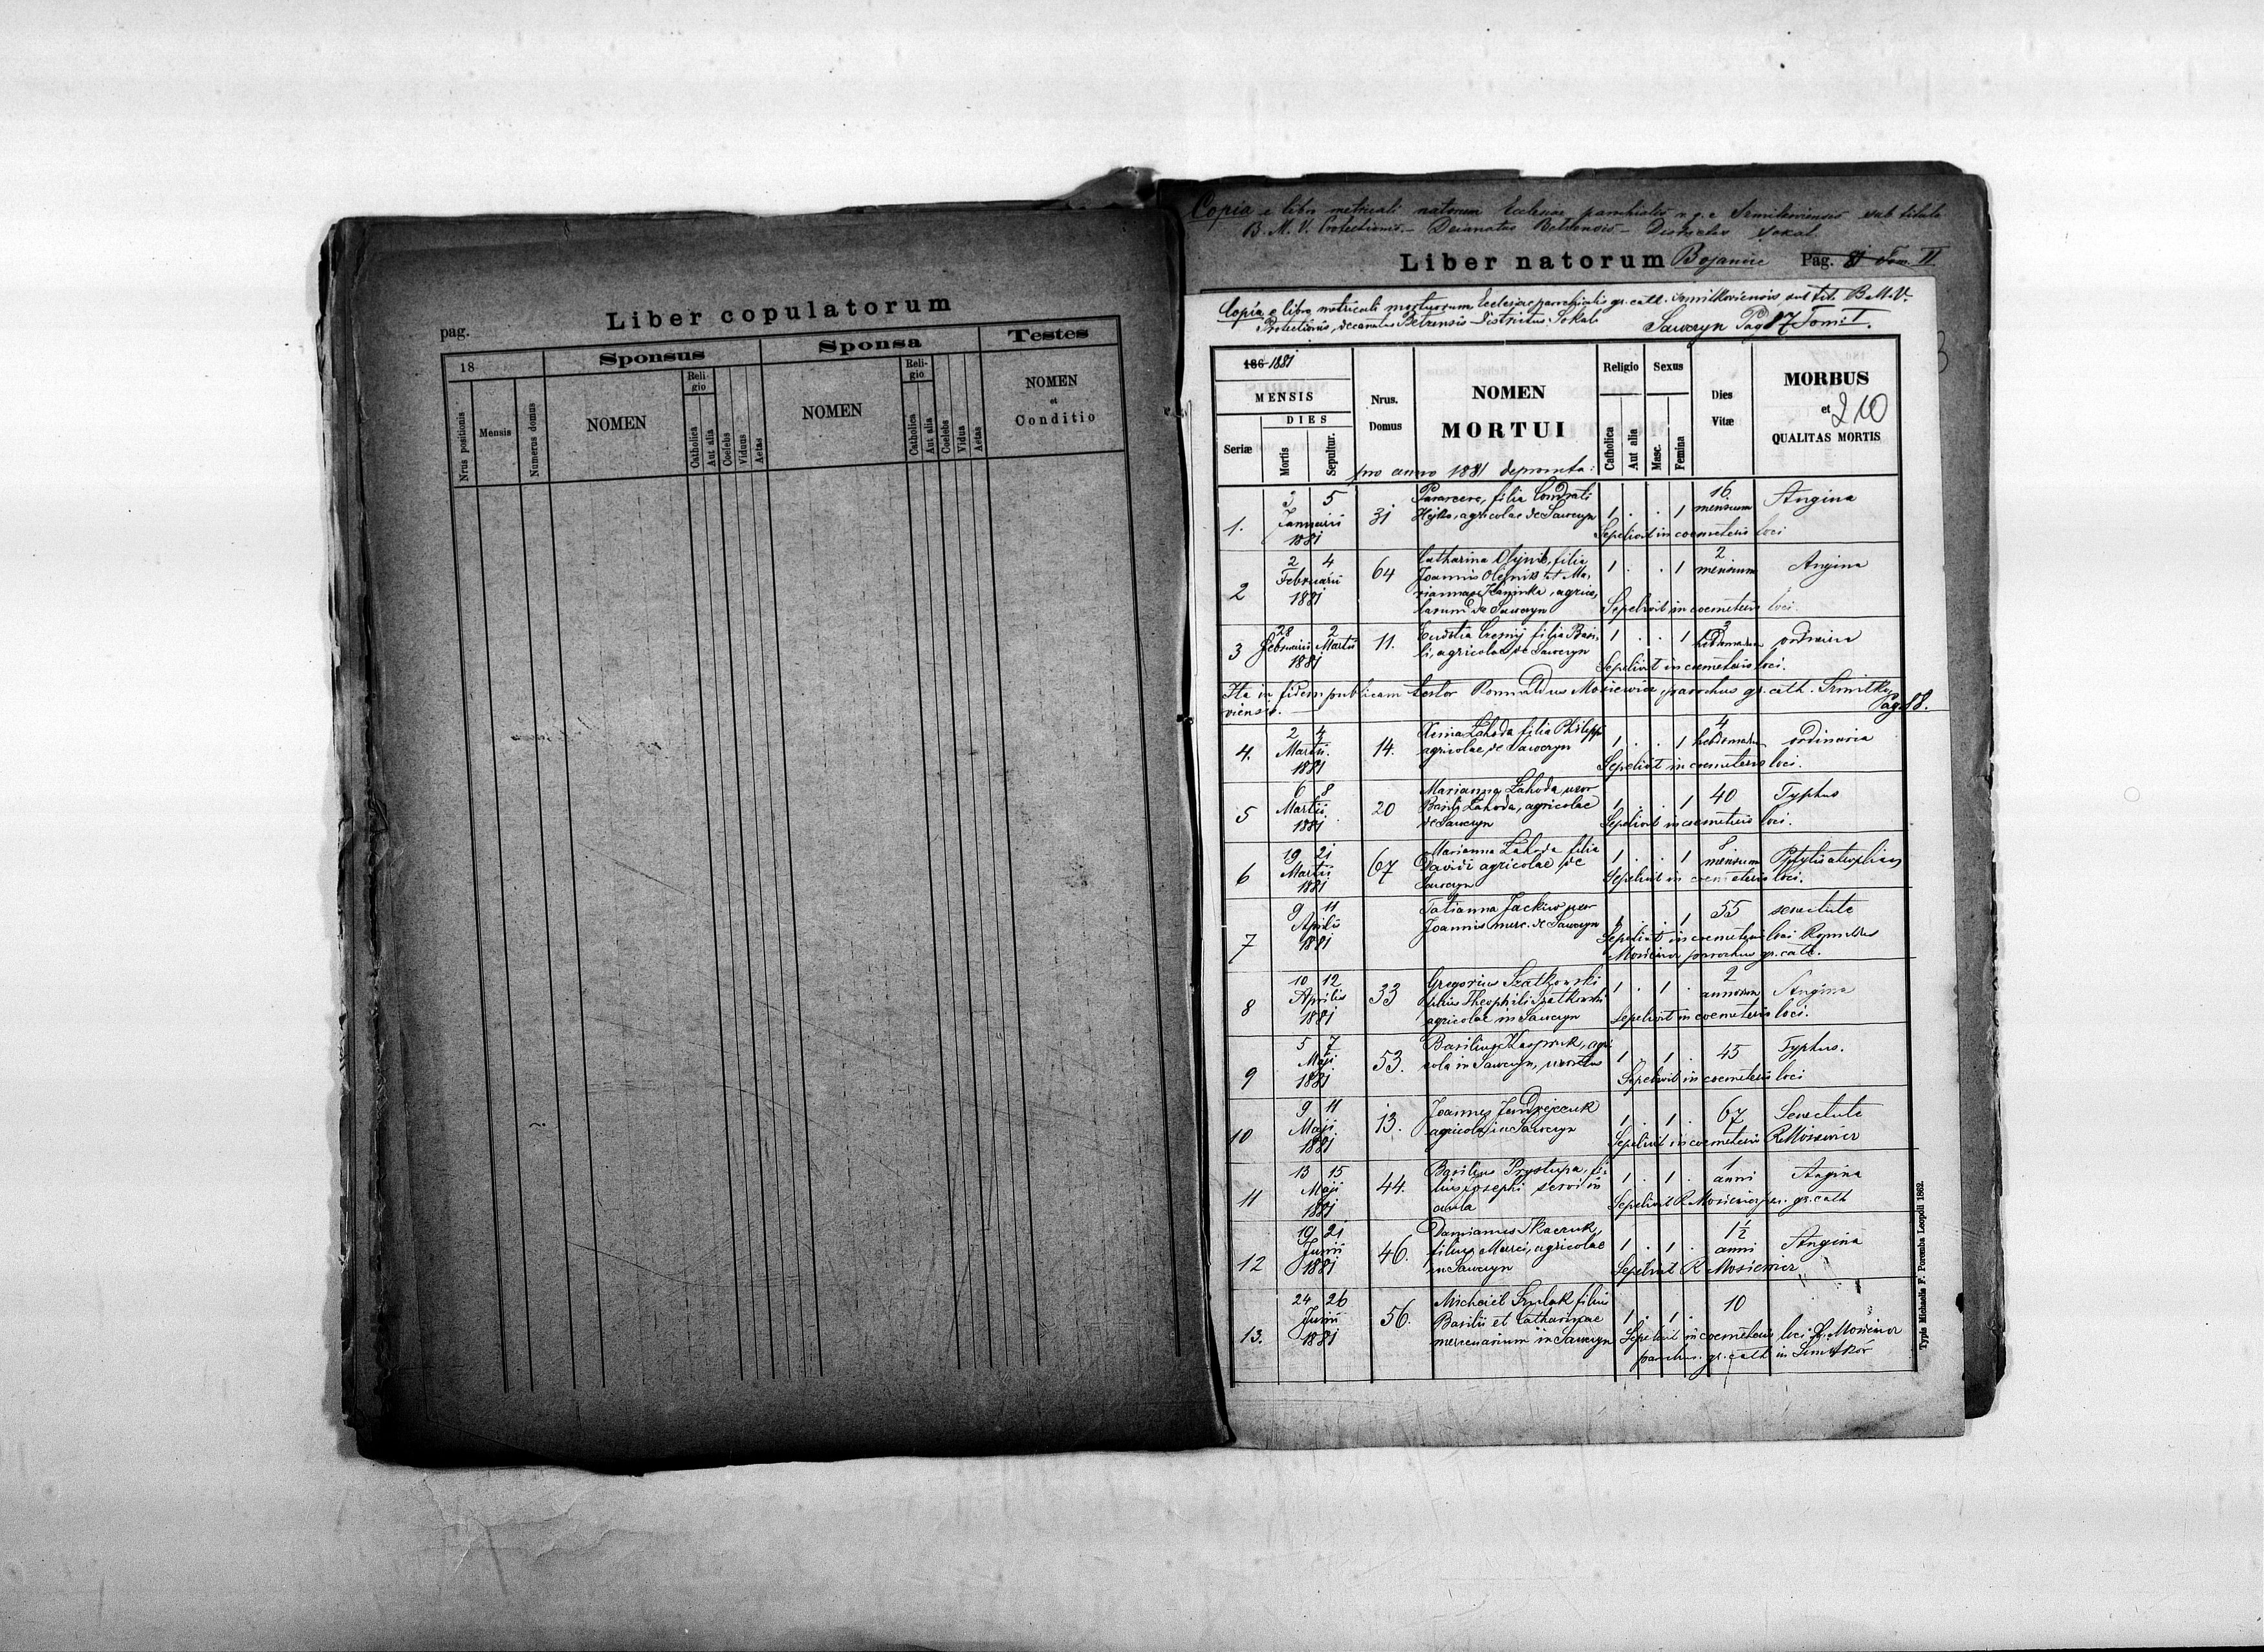 Liber copulatorum
pag.
18
Sponsus
Sponsa
Testes
Nrus positionis
Mensis
Numerus domus
NOMEN
Religio
Catholica
Aut alia
Coelebs
Viduus
Aetas
NOMEN
Religio
Catholica
Aut alia
Coelebs
Vidua
Aetas
NOMEN
et
Conditio
Copia e libro metricali natorum Ecclesiae parochialis r. g. c. Smitkoviensis sub titulo
B. M. V. Protectionis - Decanatus Belzensis - Districtus Sokal
Liber natorum Bojanice Pag. Tom II
Copia e libro metricali mortuorum Ecclesiae parochialis gr. cath. Smitkoviensis sub tit. B.M.V.
Protectionis, decanatus Belzensis Districtus Sokal
Sawczyn Pag 87 Tom: I.
186 1881
MENSIS
DIES
Seriæ
Mortis
Sepultur.
Nrus.
Domus
NOMEN
MORTUI
Religio
Catholica
Aut alia
Sexus
Masc.
Femina
Dies
Vitæ
MORBUS
et
QUALITAS MORTIS
210
pro anno 1881 deprompta:
1. 3 5 Januarii 1881
31
filia Condrati
agricolae de Sawczyn
1 . . 1
16 mensium
Angina
Sepelivit in coemeterio loci
2 2 4 Februarii 1881
64
Catharina Olijnik, filia
Joannis Olijnik et Ma-
riannae Kaminka, agrico-
larum de Sawczyn
1 . . 1
2 mensium
Angina
Sepelivit in coemeterio loci.
3 28 Februarii 2 Martii 1881
11.
filia Basi-
li, agricolae de Sawczyn
1 . . 1
3 hebdomadum
ordinaria
Sepelivit in coemeterio loci.
Ita in fidem publicam testor Romualdus Mosiewicz parochus gr. cath. Smitko-
viensis.
Pag. 88.
4. 2 4 Martii 1881
14.
Xenia Lahoda filia Philippi
agricolae, de Sawczyn
1 . . 1
4 hebdomadum
ordinaria
Sepelivit in coemeterio loci.
5 6 8 Martii 1881
20
Marianna Lahoda uxor
Basilii Lahoda, agricolae
de Sawczyn
1 . . 1
40
Typhus
Sepelivit in coemeterio loci.
6 19 21 Martii 1881
67
Marianna Lahoda filia
Davidi agricolae de
Sawczyn
1 . . 1
8 mensium
Sepelivit in coemeterio loci.
7 9 11 Aprilis 1881
Tatianna Jackiw uxor
Joannis merc. de Sawczyn
1 . . 1
55
senectute
Sepelivit in coemeterio loci Romualdus
Mosiewicz parochus gr. cath.
8 10 12 Aprilis 1881
33
Gregorius Szatkowski
filius Theophili Szatkowski
agricolae in Sawczyn
1 . 1 .
2 annorum
Angina
Sepelivit in coemeterio loci.
9 5 7 Maji 1881
53.
Basilius Kaspruk, agri-
cola in Sawczyn, uxoratus
1 . 1 .
45
Typhus.
Sepelivit in coemeterio loci
10 9 11 Maji 1881
13.
Joannes Jendrejczuk
agricola in Sawczyn
1 . 1 .
67
Senectute
Sepelivit in coemeterio R Mosiewicz
11 13 15 Maji 1881
44.
Basilius Prystupa, fi-
lius Josephi servi in
aula
1 . 1 .
1 anni
Angina
Sepelivit R Mosiewicz par. gr. cath
12 19 21 Junii 1881
46.
Damianus Tkaczuk,
filius Marci, agricolae
in Sawczyn
1 . 1 .
1½ anni
Angina
Sepelivit R Mosiewicz
13. 24 26 Junii 1881
56.
Michaël Szulak filius
Basilii et Catharinae
mercenarium in Sawczyn
1 . 1 .
10
Sepelivit in coemeterio loci R. Mosiewicz
parochus gr. cath in Smitków
Typis Michaelis F. Poremba Leopoli 1862.